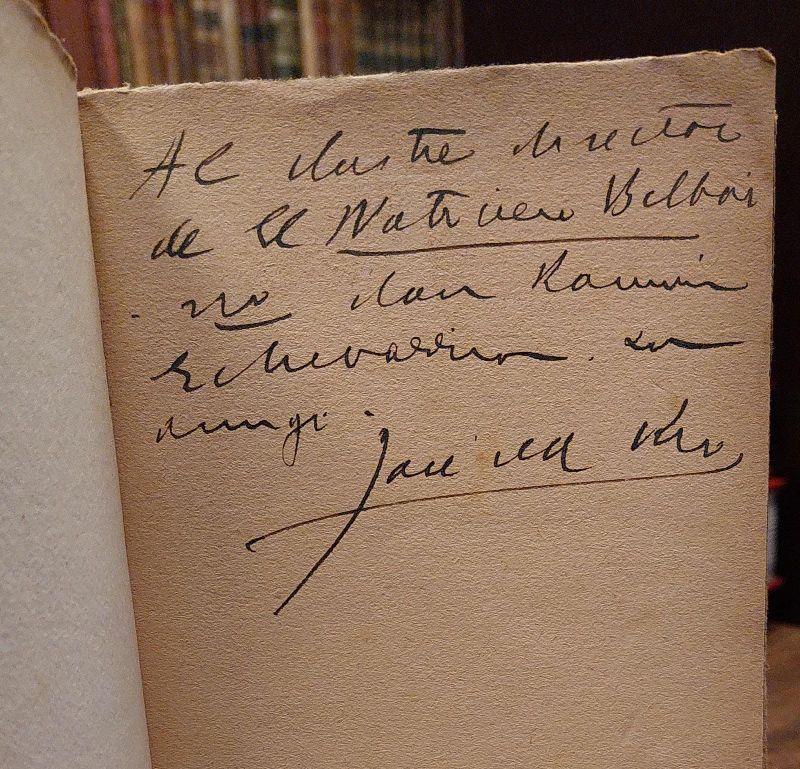 Al ilustre director
de El Noticiero Bilbai
no don Ramón
Echevarria. su
amigo.
José del Rio